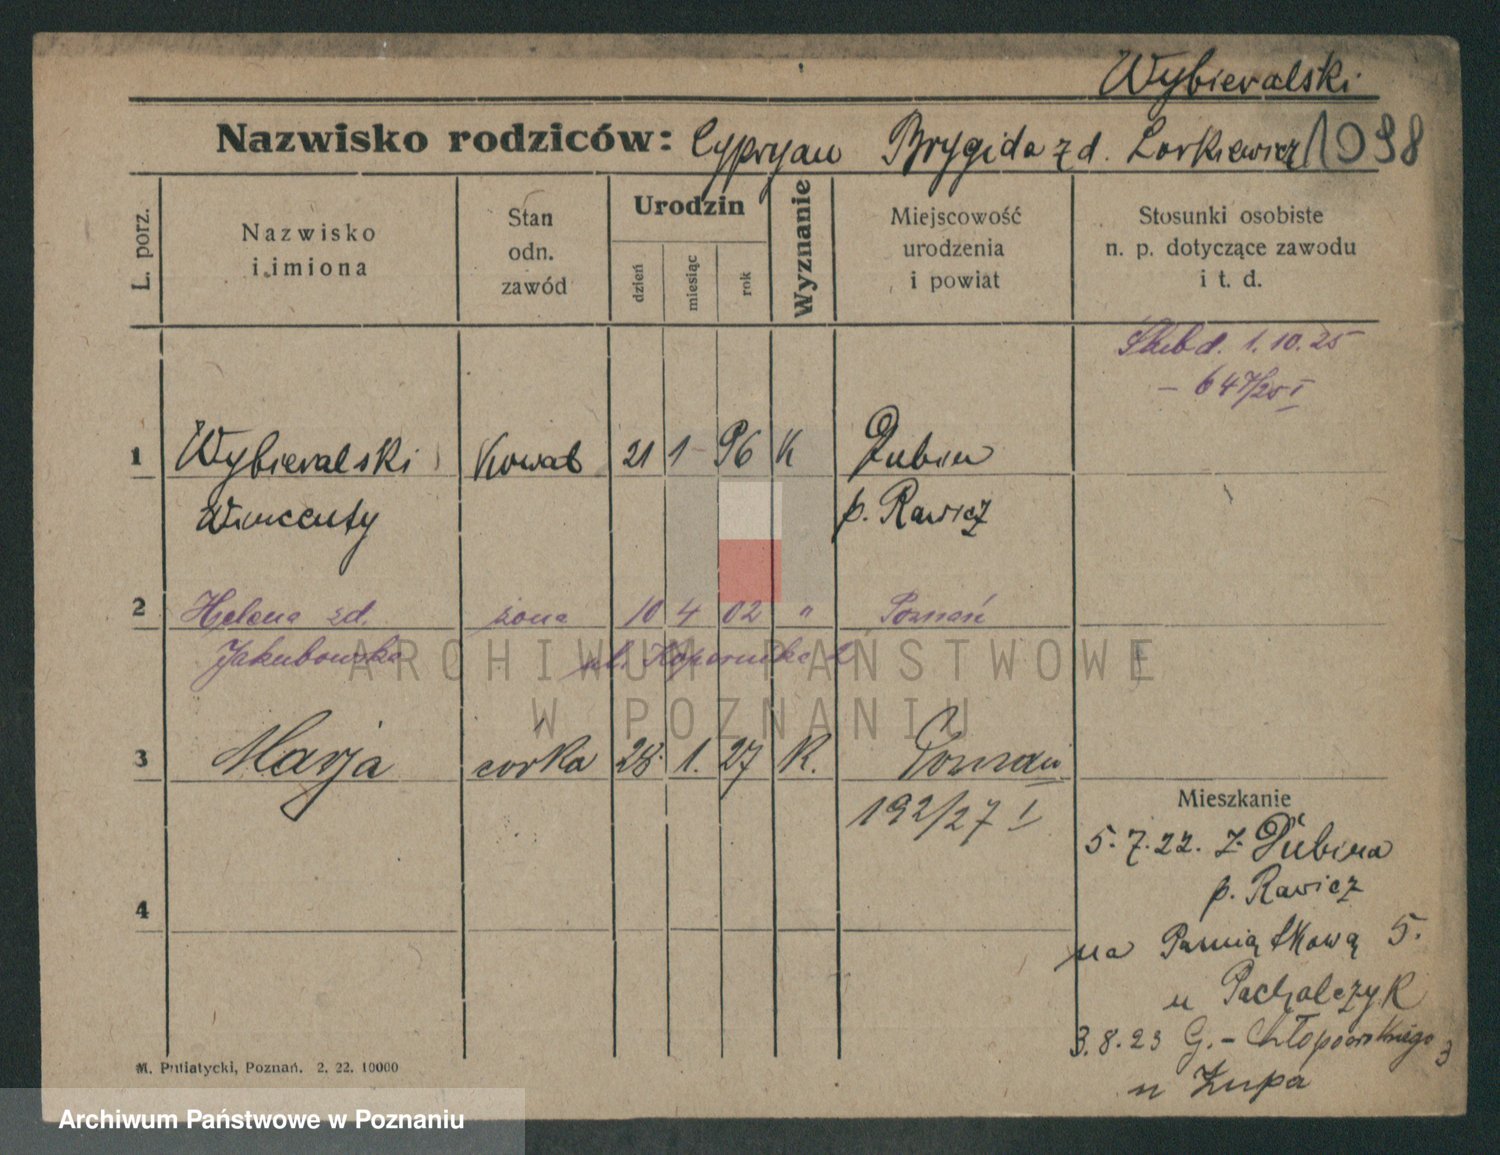 Wybieralski
Nazwisko rodziców: Cypryan Brygida z d. Lorkiewicz 1098
L. porz.
Nazwisko i imiona
Stan odn. zawód
Urodzin
dzień
miesiąc
rok
Wyznanie
Miejscowość urodzenia i powiat
Stosunki osobiste n. p. dotyczące zawodu i t. d.
1. 10. 25
- 647/25 I
1 Wybieralski Kowal 21 1 96 K Dubin
Wincenty p. Rawicz
2 Helena zd. żona 10 4 02 " Poznań
Jakubowska ul. Kopernika
3 Marja córka 28. 1. 27 K. Poznań
192/27 I
Mieszkanie
5. 7. 22. z Dubina
p. Rawicz
4
na Pamiątkową 5.
u Pachalczyk
3. 8. 23 G. - Chłapowskiego 3
u Zupa
M. Putiatycki, Poznań. 2. 22. 10000
ARCHIWUM PAŃSTWOWE
W POZNANIU
Archiwum Państwowe w Poznaniu